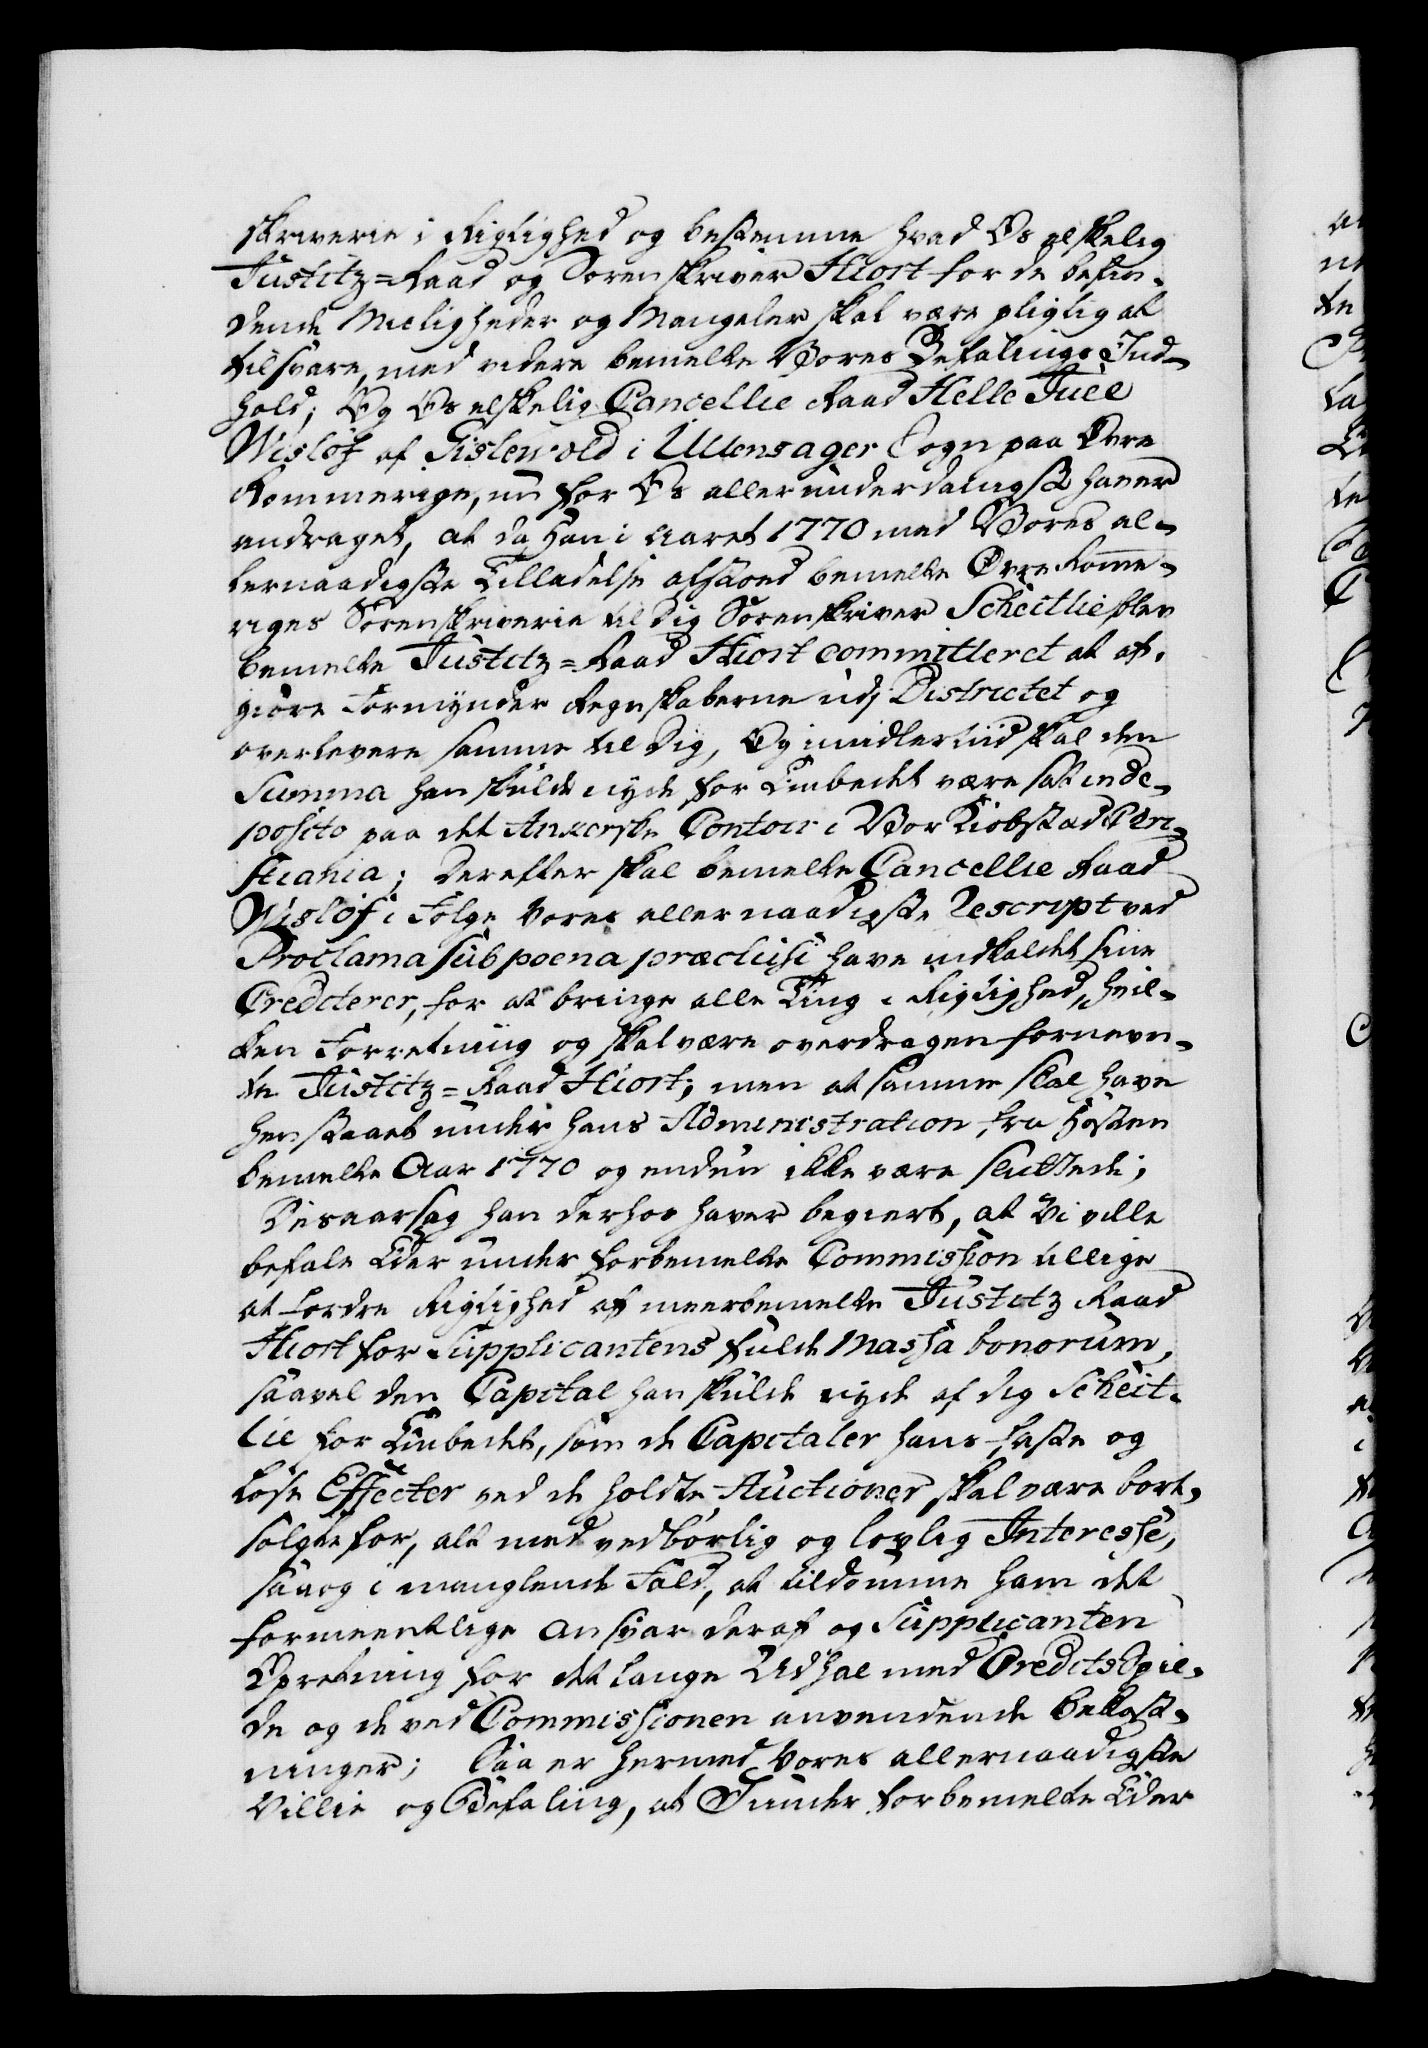 skriverie i Rigtighed og bestemme hvad Os elskelig
Justitz=Raad og Sorenskriver Hiort for de befin-
dende Mueligheder og Mangeler skal være pligtig at
tilsvare, med videre bemelte Vores Befalings Ind-
hold; Og Os elskelig Cancellie Raad Helle Juel
Wisløf af Gislevold i Ullensager Sogn paa Øvre
Rommerige, nu for Os allerunderdanigst haver
andraget, at da han i Aaret 1770 med Vores al-
lernaadigste Tilladelse afstoed bemelte Øvre Romme-
riges Sorenskriverie til dig Sorenskriver Scheitlie blev
bemelte Justitz=Raad Hiort committeret at af-
giøre Formynder Regnskaberne udj Districtet og
overlevere samme til dig, Og imidlertiid skal den
Summa han skulde nyde for Embedet være sat in de-
posito paa det Ankerske Contoir i Vor Kiøbstad Chri-
stiania; derefter skal bemelte Cancellie Raad
Wisløf i Følge Vores allernaadigste Rescript ved
Proclama sub poena præclusi have indkaldet sine
Creditorer, for at bringe alle Ting i Rigtighed, hvil-
ken Forretning og skal være overdragen fornevn-
te Justitz=Raad Hiort; men at samme skal have
henstaaet under hans Administration fra Høsten
bemelte Aar 1770 og endnu ikke være sluttede;
Desaarsag han derhos haver begiert, at Vi ville
befale Eder under forbemelte Commission tillige
at fordre Rigtighed af meerbemelte Justitz Raad
Hiort for Supplicantens fulde Massa bonorum,
saavel den Capital han skulde nyde af dig Scheit-
lie for Embedet, som de Capitaler hans faste og
løse Effecter ved de holdte Auctioner skal være bort-
solgte for, alt med vedbørlig og lovlig Interesse,
saa og i manglende Fald, at tildømme ham det
formeentlige Ansvar deraf og Supplicanten
Opretning for det lange Udhal med Credits Spil-
de og de ved Commissionen anvendende Bekost-
ninger; Saa er hermed Vores allernaadigste
Villie og Befaling, at I under forbemelte Eder